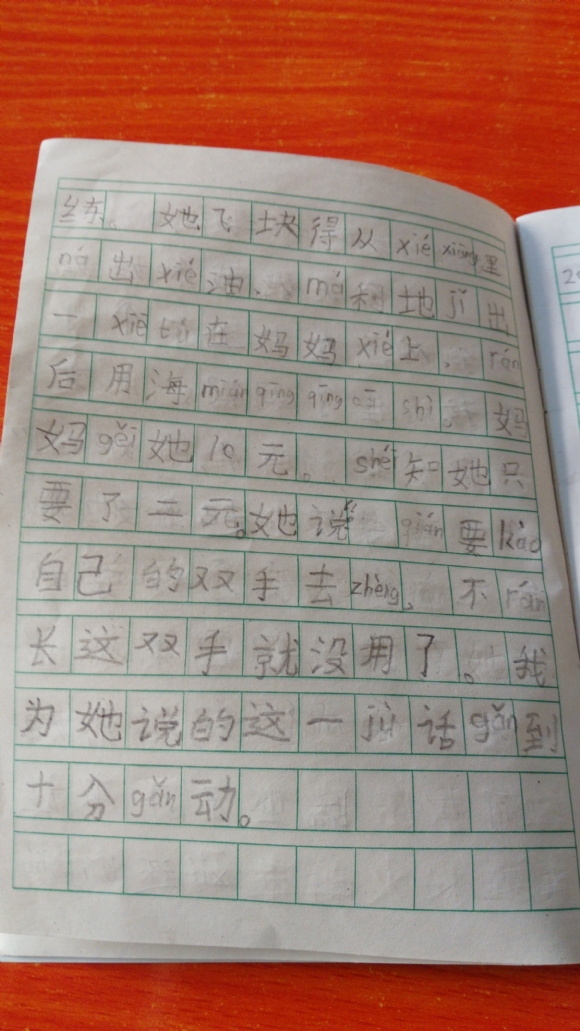 练。 她飞块得从 xié xiāng 里
ná 出 xié 油, má 利地 jǐ 出
一 xiē tú 在妈妈 xié 上, rán
后用海 mián qīng qīng cā shì。妈
妈 gěi 她10元。 shéi 知她只
要了二元。她说“ qián 要 kào
自己的双手去 zhèng, 不 rán
长这双手就没用了。我
为她说的这一 jù 话 gǎn 到
十分 gǎn 动。